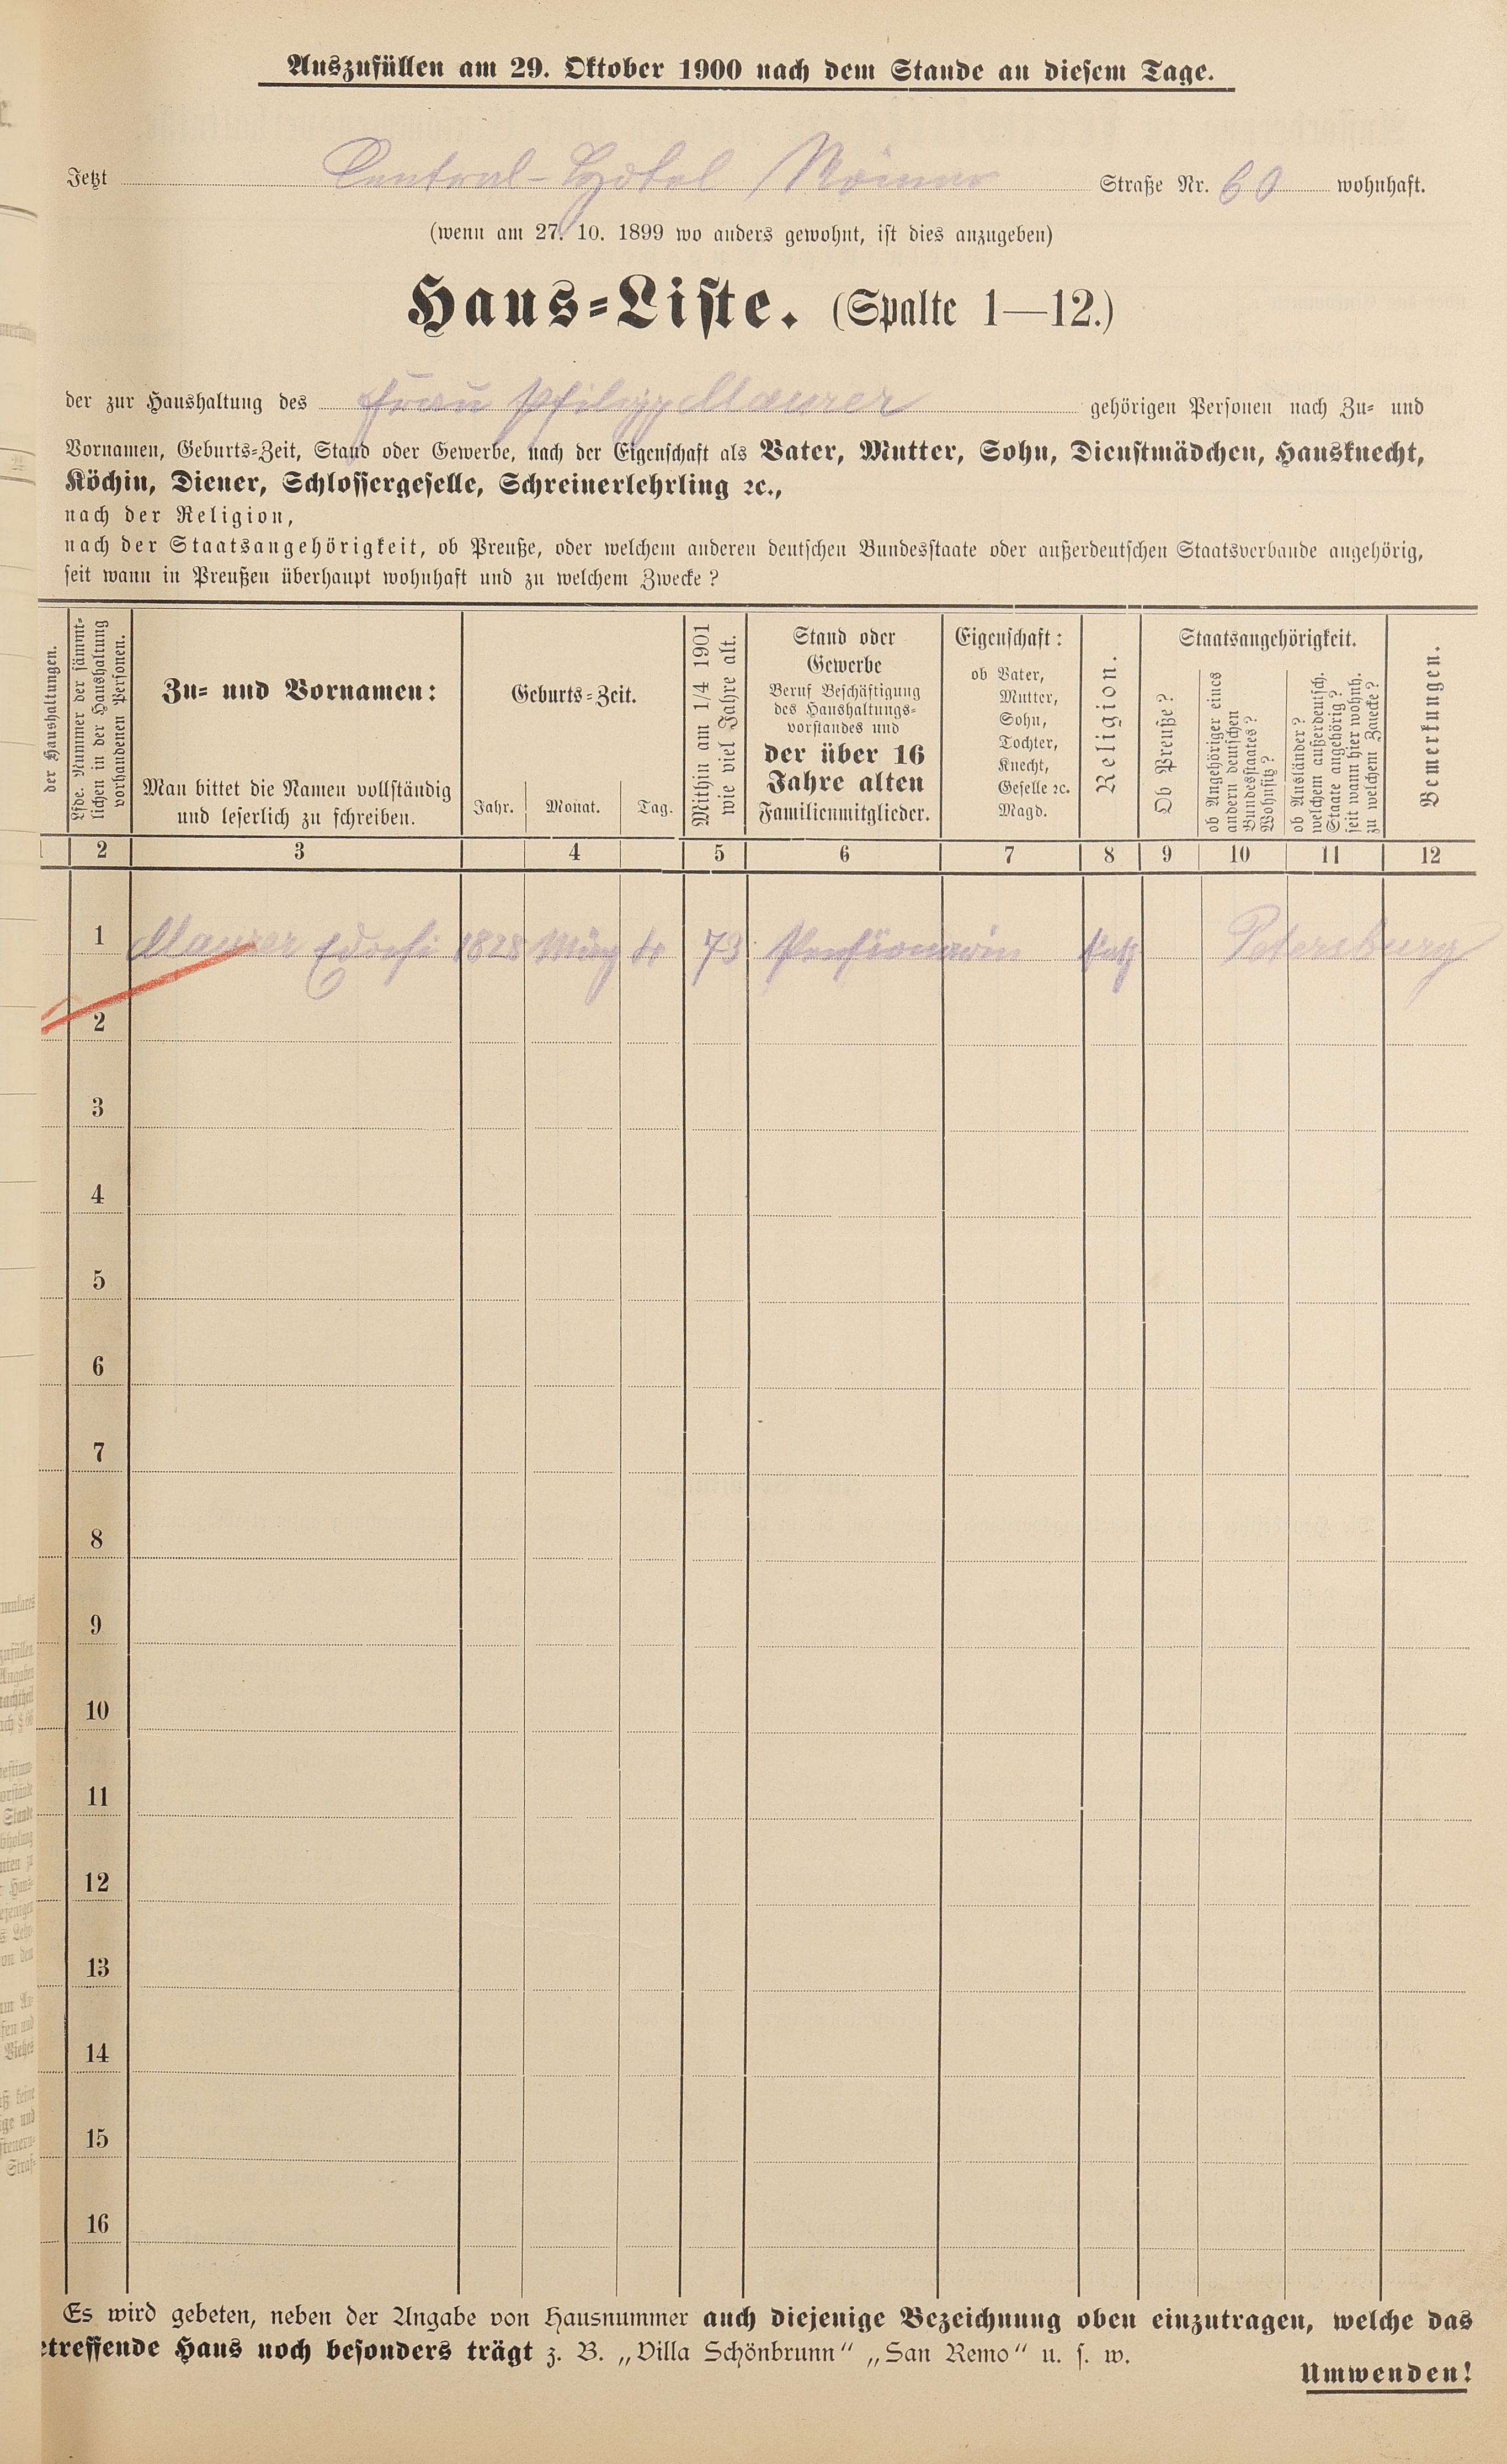 Auszufüllen am 29. Oktober 1900 nach dem Stande an diesem Tage.
Jetzt Central-Hôtel Straße Nr. 60 wohnhaft.
(wenn am 27. 10. 1899 wo anders gewohnt, ist dies anzugeben)
Haus-Liste. (Spalte 1—12.)
der zur Haushaltung des Frau Philipp Maurer gehörigen Personen nach Zu- und
Vornamen, Geburts-Zeit, Stand oder Gewerbe, nach der Eigenschaft als Vater, Mutter, Sohn, Dienstmädchen, Hausknecht,
Köchin, Diener, Schlossergeselle, Schreinerlehrling ꝛc.,
nach der Religion,
nach der Staatsangehörigkeit, ob Preuße, oder welchem anderen deutschen Bundesstaate oder außerdeutschen Staatsverbande angehörig,
seit wann in Preußen überhaupt wohnhaft und zu welchem Zwecke?
der Haushaltungen.
Lfde. Nummer der sämmt-
lichen in der Haushaltung
vorhandenen Personen.
Zu- und Vornamen:
Man bittet die Namen vollständig
und leserlich zu schreiben.
Geburts-Zeit.
Jahr. Monat. Tag.
Mithin am 1/4 1901
wie viel Jahre alt.
Stand oder
Gewerbe
Beruf Beschäftigung
des Haushaltungs-
vorstandes und
der über 16
Jahre alten
Familienmitglieder.
Eigenschaft:
ob Vater,
Mutter,
Sohn,
Tochter,
Knecht,
Geselle ꝛc.
Magd.
Religion.
Staatsangehörigkeit.
Ob Preuße?
ob Angehöriger eines
andern deutschen
Bundesstaates?
Wohnsitz?
ob Ausländer?
welchem außerdeutsch.
Staate angehörig?
seit wann hier wohnh.
zu welchem Zwecke?
Bemerkungen.
2 3 4 5 6 7 8 9 10 11 12
1 Maurer 1828 März 4 73 Pensionärin kath Petersburg
2
3
4
5
6
7
8
9
10
11
12
13
14
15
16
Es wird gebeten, neben der Angabe von Hausnummer auch diejenige Bezeichnung oben einzutragen, welche das
etreffende Haus noch besonders trägt z. B. „Villa Schönbrunn“ „San Remo“ u. s. w.
Umwenden!